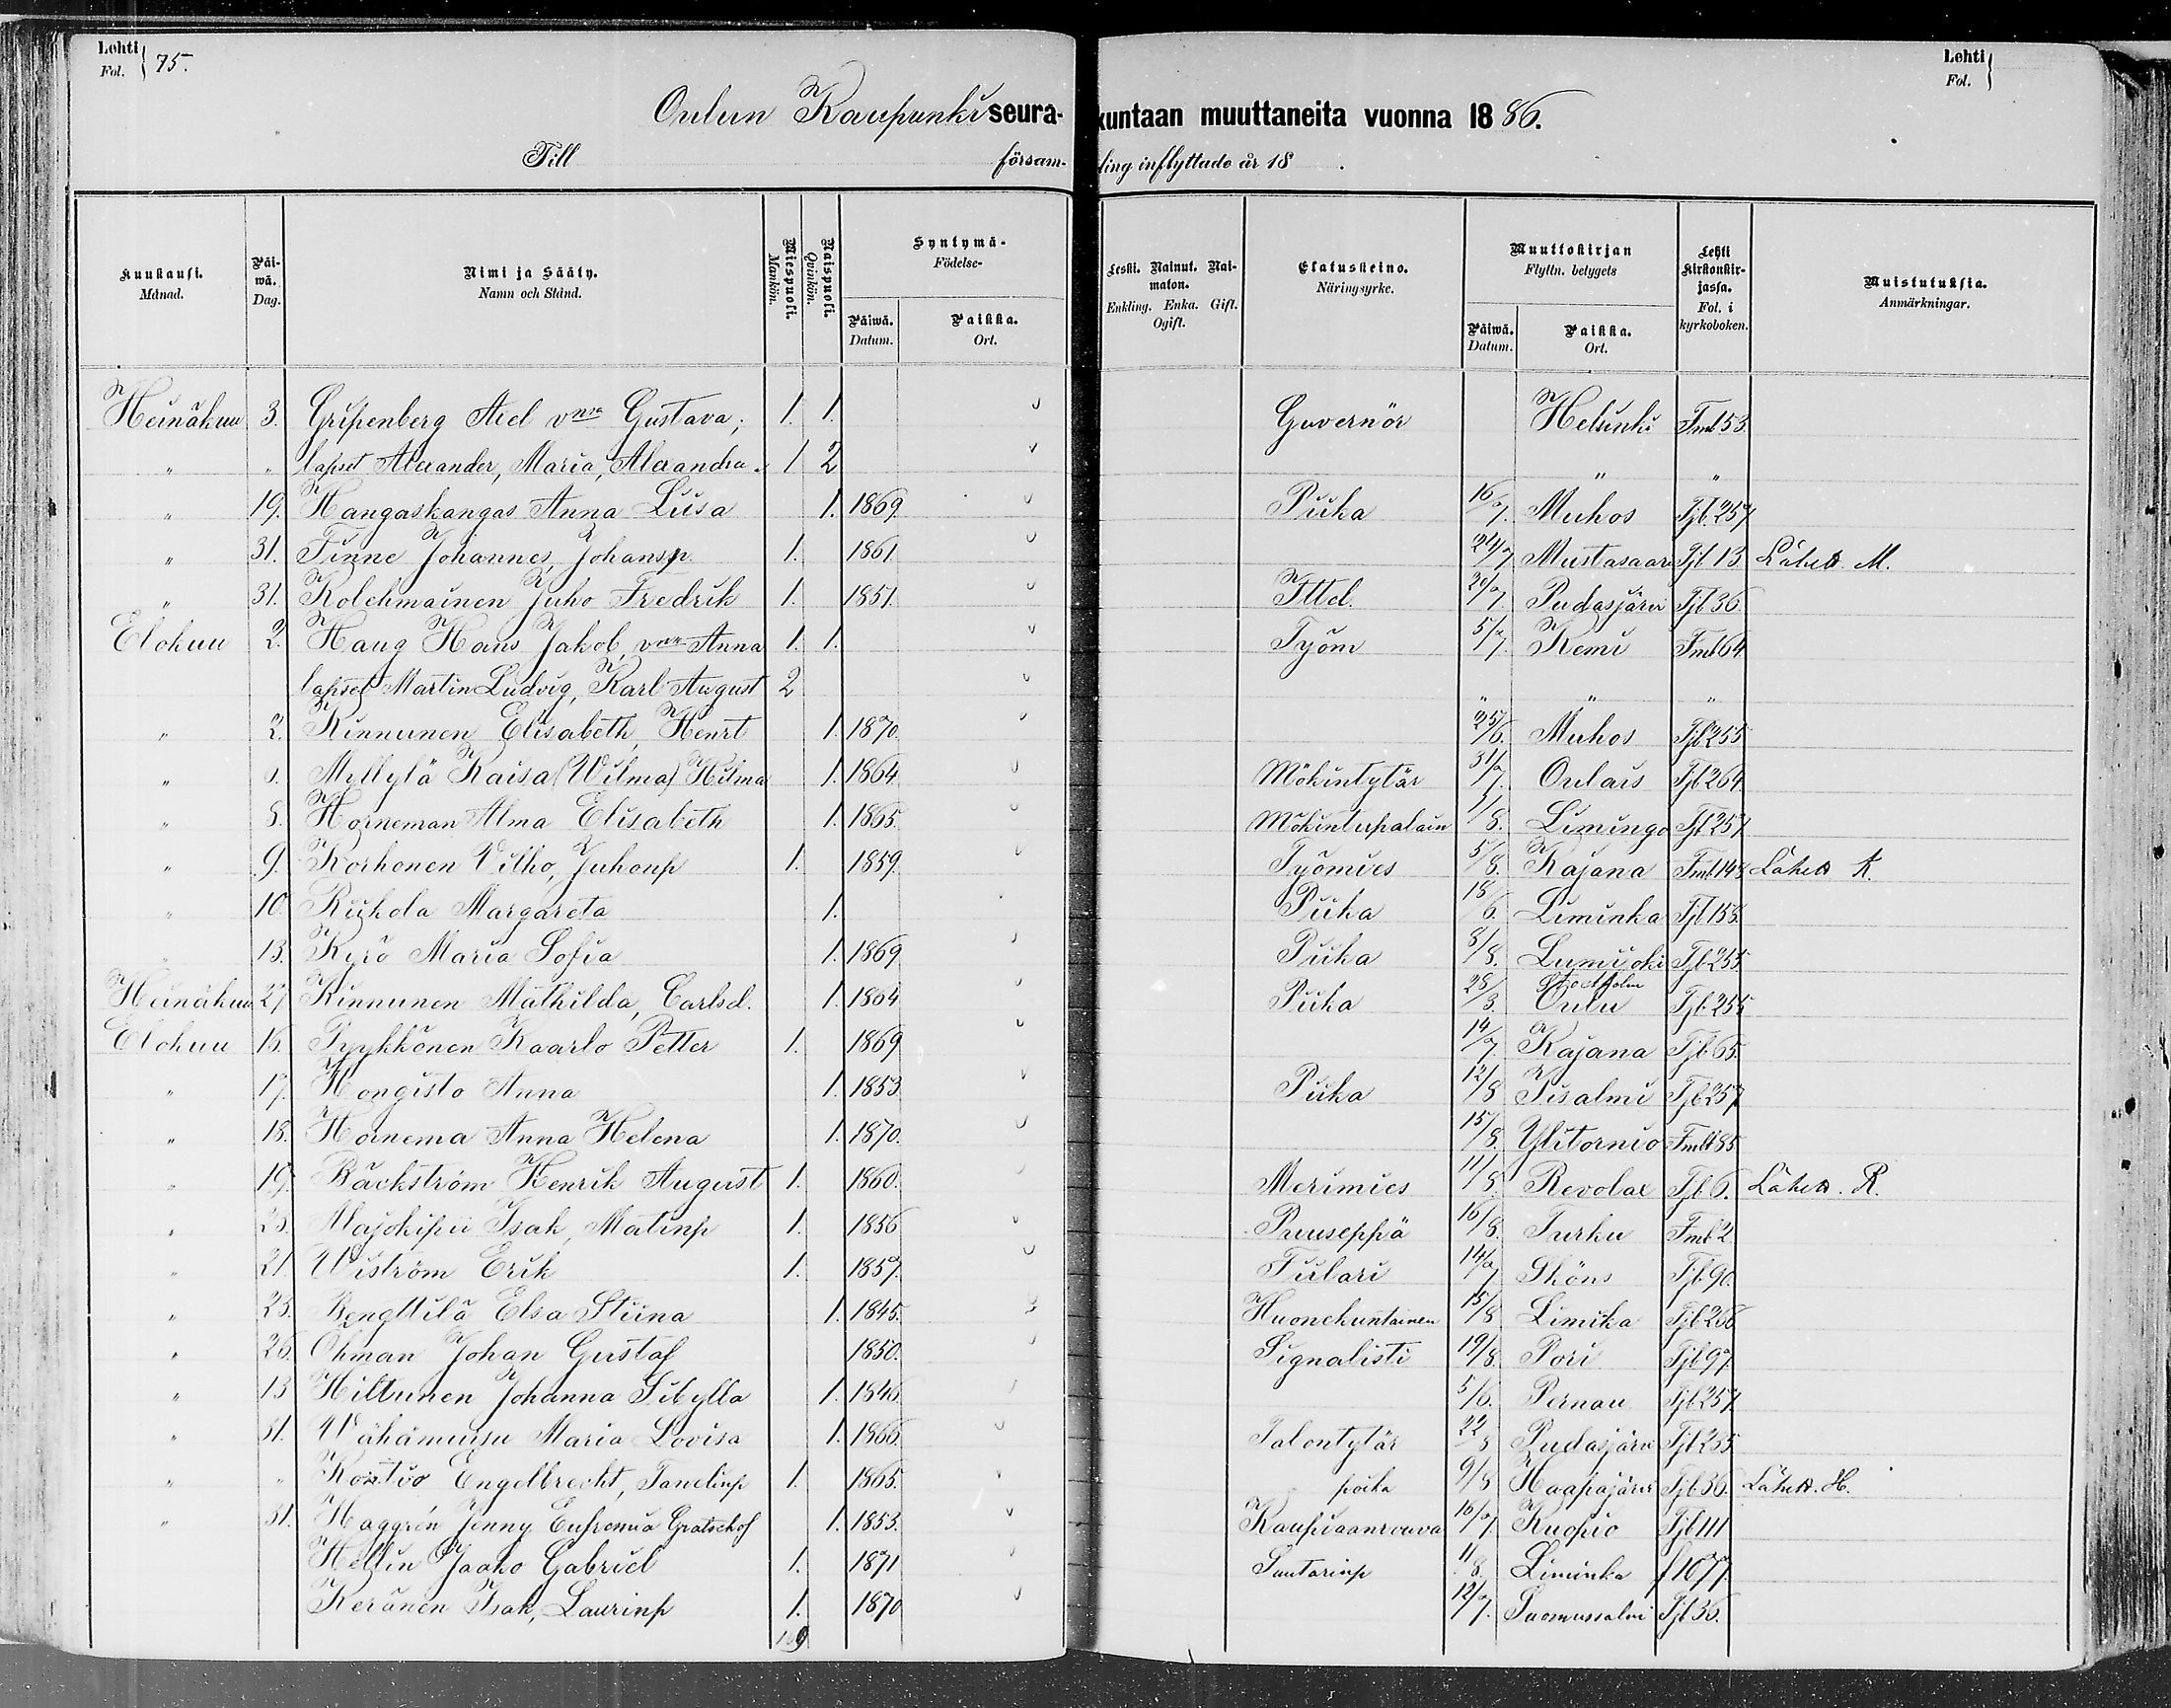 Lehti
Fol. 75.
Lehti
Fol.
Oulun Kaupunki seurakuntaan muuttaneita vuonna 1886.
Till församling inflyttade år 18 .
Kuukausi. Månad. Päiwä. Dag. Nimi ja Sääty. Namn och Stånd. Miespuoli. Mankön. Naispuoli. Quinkön. Syntymä- Födelse- Päiwä. Datum. Paikka. Ort. Leski. Nainut. Naimaton. Enkling. Enka. Gift. Ogift. Elatuskeino. Näringsyrke. Muuttokirjan Flyttn. betygets Päiwä. Datum. Paikka. Ort. Lehti Kirkonkirjassa. Fol. i kyrkoboken. Muistutuksia. Anmärkningar.
Heinäkuu 3. Gripenberg Axel vnsa Gustava; 1. 1. Guvernör Helsinki Fmb 53
" " lapset Alexander, Maria, Alexandra. 1 2 " "
" 19. Hangaskangas Anna Liisa 1. 1869 Piika 16/7. Muhos Tjb. 257
" 31. Tinne Johannes, Johansp. 1. 1861 24/7 Mustasaari Tjb 13 Lähet. M.
" 31. Kolehmainen Juho Fredrik 1. 1851. Ittel. 20/7. Pudasjärvi Tjb 36.
Elokuu 2. Haug Hans Jakob, vnsa Anna 1. 1. Työm 5/7. Kemi Fmb 64
lapset Martin Ludvig, Karl August 2 " " "
" 2. Kinnunen Elisabeth, Henrt 1. 1870. 25/6. Muhos Tjb 255
" Myllylä Kaisa (Wilma) Hilma 1. 1864 Mökintytär 31/7. Oulais Tjb 264
" 8. Horneman Alma Elisabeth 1. 1865. Mökintupalain 1/8. Limingo Tjb 257
" 9. Korhonen Vilho, Juhonp 1. 1859. Työmies 5/8. Kajana Fmb 148 Lähet K.
" 10. Riihola Margareta 1. Piika 18/6. Liminka Tjb 158.
13. Kyrö Maria Sofia 1. 1869 Piika 8/8. Lumijoki Tjb 255
Heinäkuu 27 Kinnunen Mathilda, Carlsd. 1. 1864 Piika 28/3. Stockholm Oulu Tjb. 255
Elokuu 16. Pyykkönen Kaarlo Petter 1. 1869 14/7 Kajana Tjb. 65.
" 17. Hongisto Anna 1. 1853 Piika 12/8 Iisalmi Tjb 257
" 18. Hornema Anna Helena 1. 1870. 15/8. Ylitornio Fmb 185
" 19. Bäckström Henrik August 1. 1860. Merimies 11/8. Revolax Tjb. 6. Lähet. R.
" 23. Majokipii Isak, Matinp 1. 1856 Puuseppä 16/8. Turku Fmb 2
" 21. Wiström Erik 1. 1857. Viilari 14/7 Sköns Tjb. 90.
" 23. Bengttilä Elsa Stiina 1. 1845. Huonekuntainen 15/8 Limika Tjb. 256
" 26. Ohman Johan Gustaf 1850. Signalisti 19/8. Pori Tjb. 97.
" 13 Hiltunen Johanna Sibylla 1. 1846. 5/6. Pernau Tjb 257
" 31. Wähämursu Maria Lovisa 1. 1866. Talontytär 22/8 Pudasjärvi Tjb 255
" " Kontio Engelbrecht, Tanelinp 1. 1865. poika 9/8 Haapajärvi Tjb. 36. Lähet. H.
" 31. Haggrén Jenny Eufromia Gratschof 1. 1853. Kaupiaanrouva 16/7. Kuopio Tjb 111
Hellin Jaako Gabriel 1. 1871 Suutarinp 11/8. Liminka f 1077.
Keränen Isak, Laurinp 1. 1870 12/7. Suomussalmi Tjb 36.
109